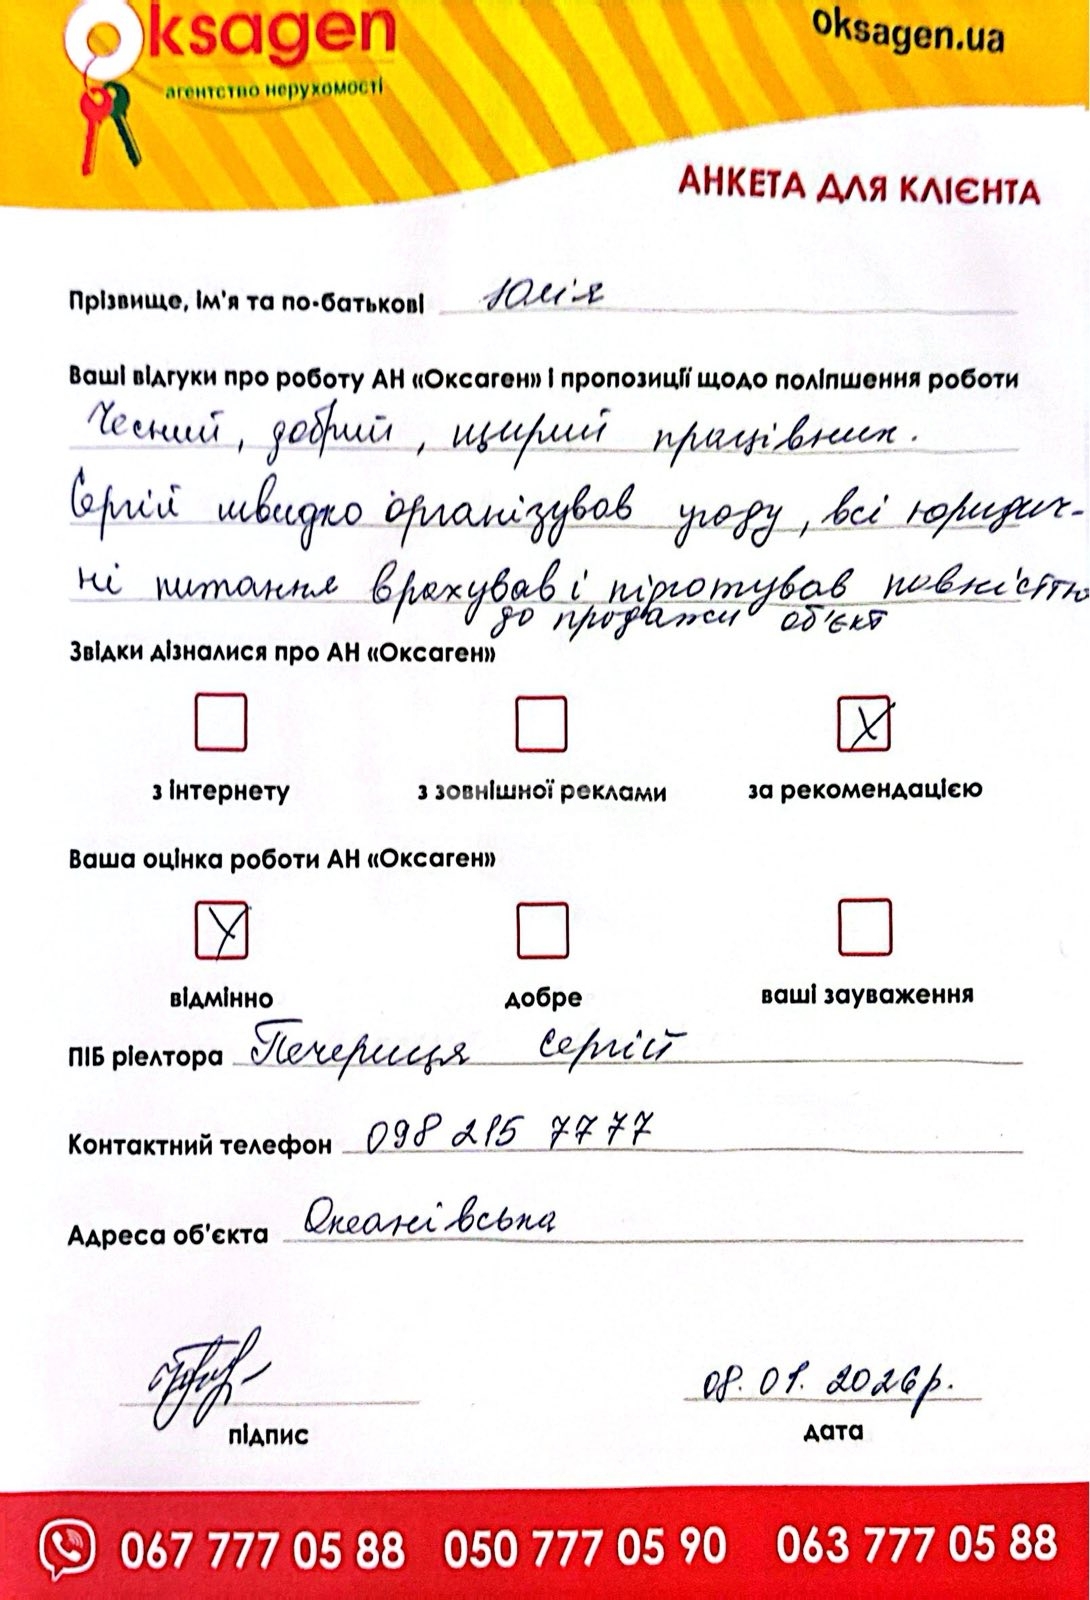 Oksagen
агентство нерухомості
oksagen.ua
АНКЕТА ДЛЯ КЛІЄНТА
Прізвище, ім'я та по-батькові Юлія
Ваші відгуки про роботу АН «Оксаген» і пропозиції щодо поліпшення роботи
Чесний, добрий, щирий працівник.
Сергій швидко організував угоду, всі юридич-
ні питання врахував і підготував повністю
до продажи об'єкт
Звідки дізналися про АН «Оксаген»
з інтернету з зовнішної реклами за рекомендацією
Ваша оцінка роботи АН «Оксаген»
відмінно добре ваші зауваження
ПІБ ріелтора Печериця Сергій
Контактний телефон 098 215 7777
Адреса об'єкта Океанівська
08.01.2026р.
підпис дата
067 777 05 88 050 777 05 90 063 777 05 88